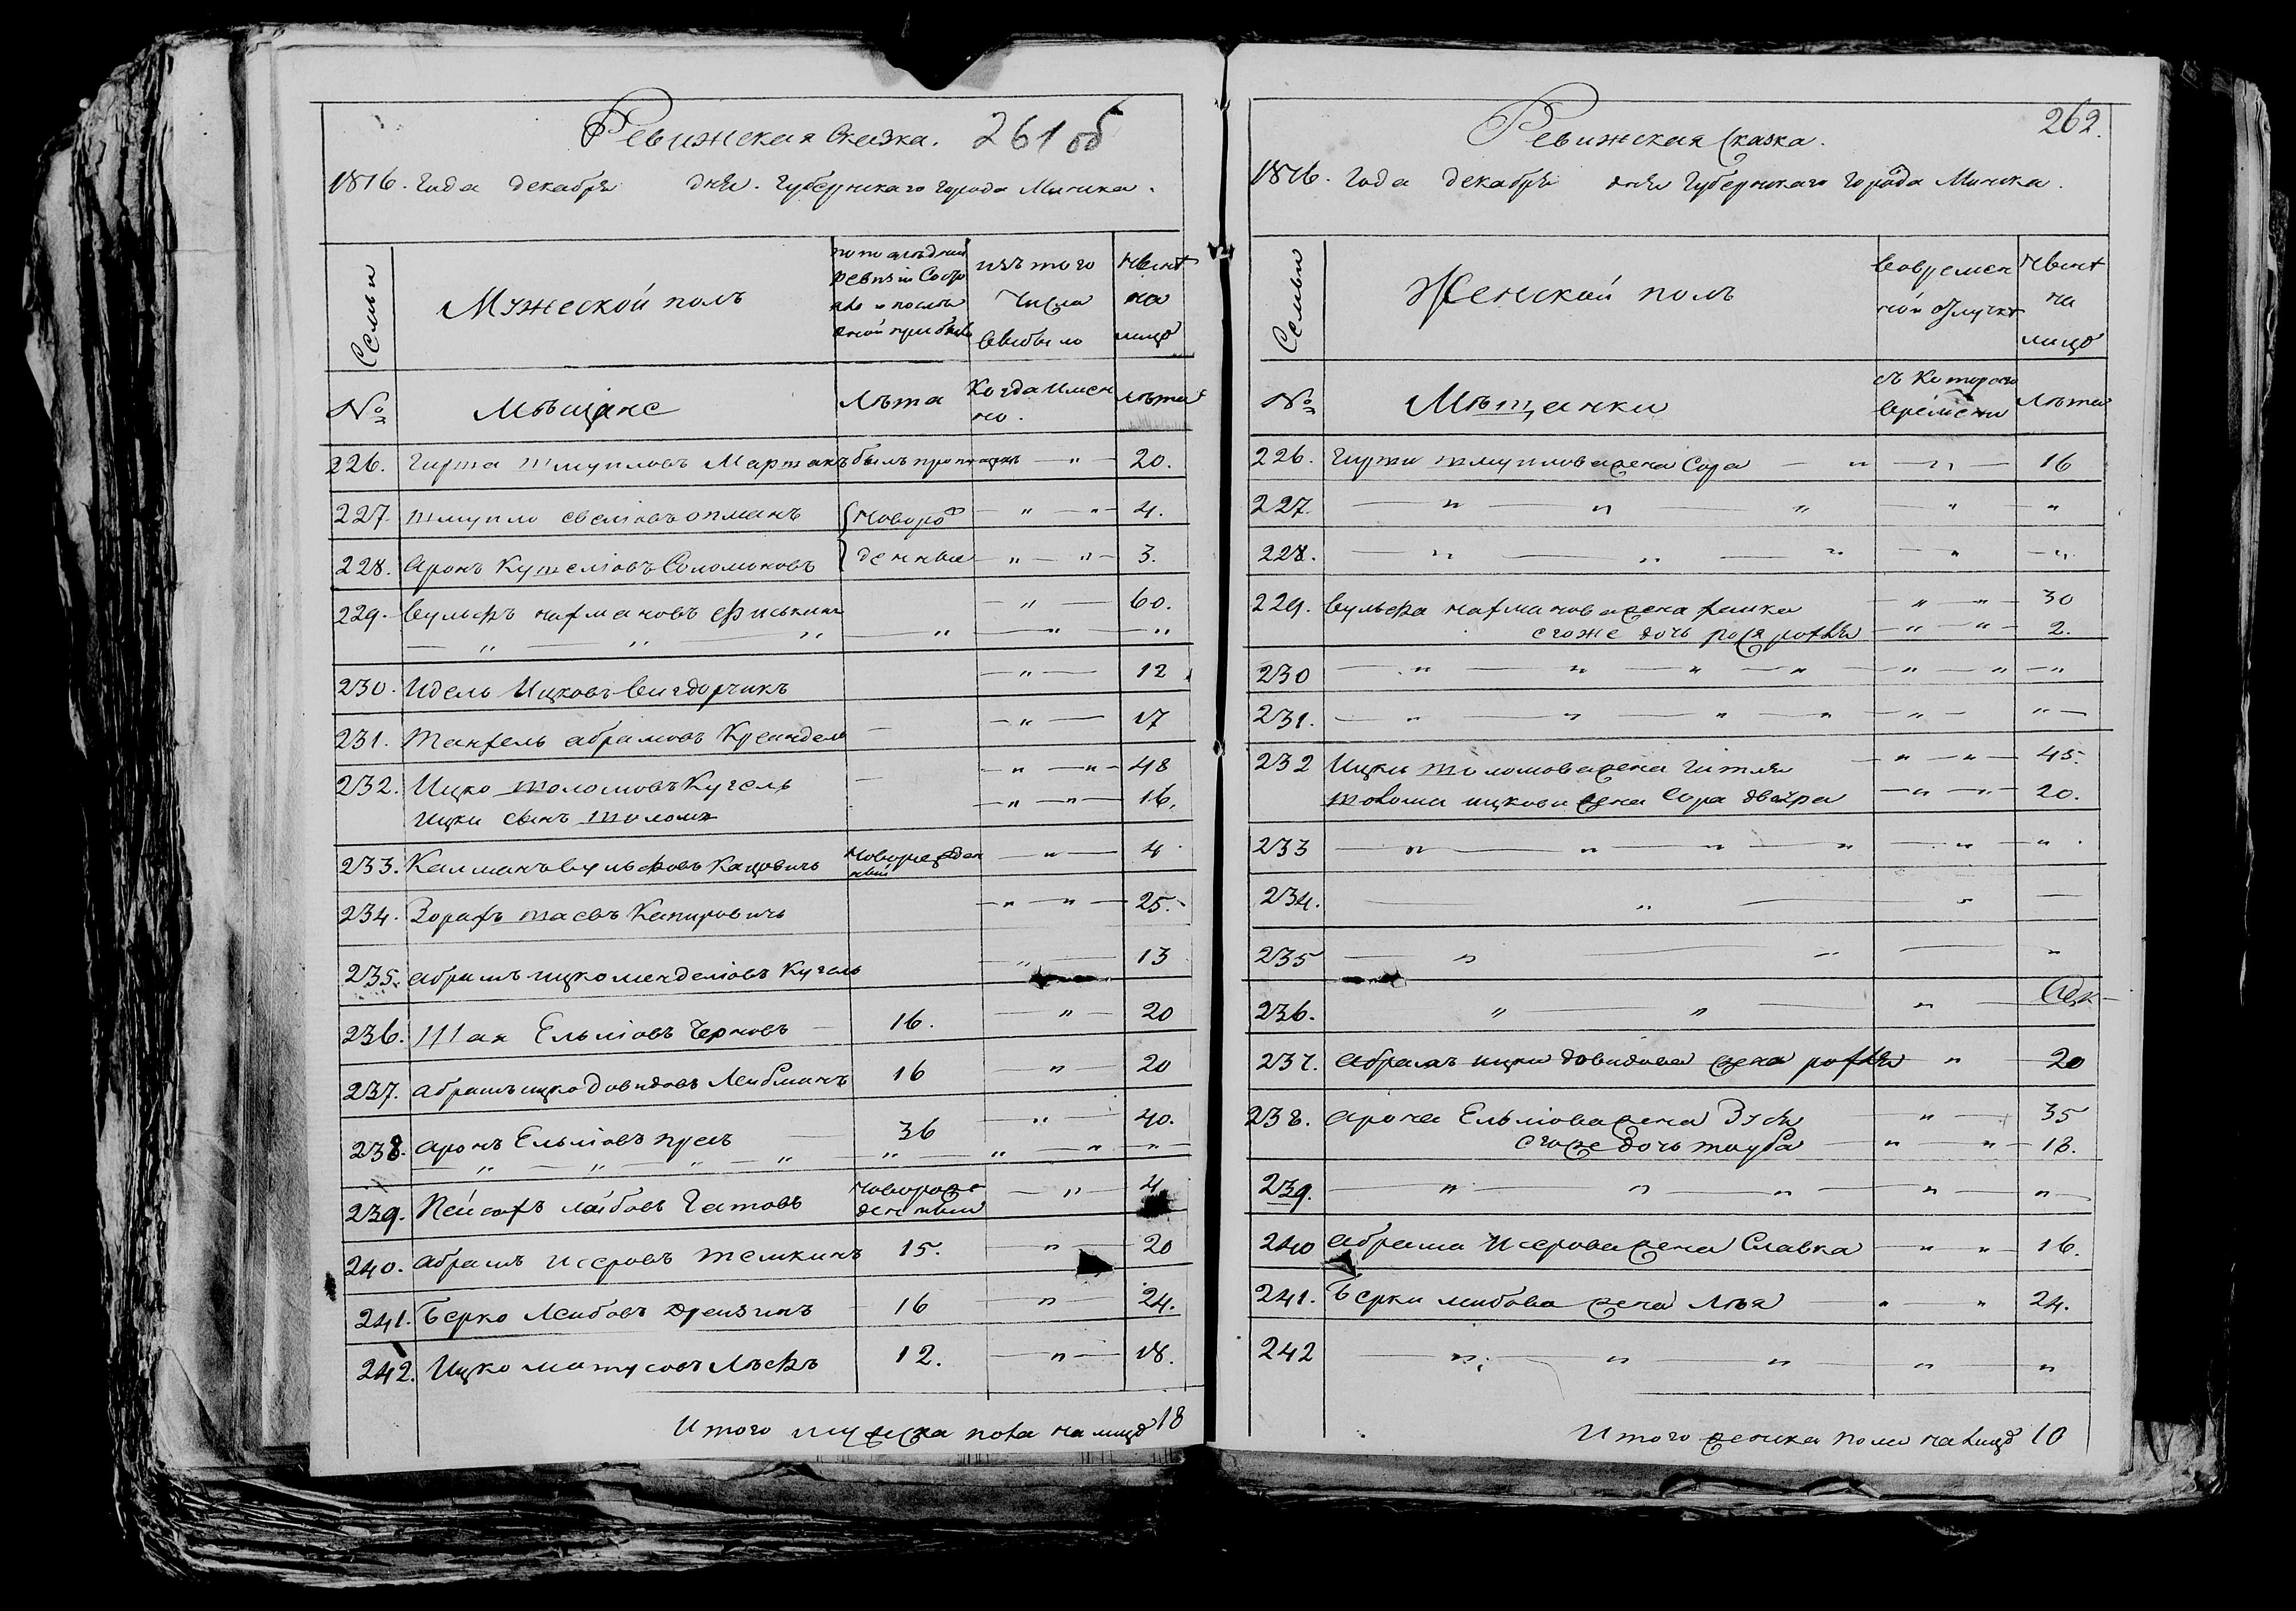 Ревижская сказка. 261 об
1816. Года декабря дня. Губернскаго города Минска.
Семьи
Мужеской полъ
по последней ревизіи состо
яло и после
оной прибыло
изъ того
числа
выбыло
ныне
на
лицо
№
Мѣщане
Лѣта
Когда имен
но.
лѣта
226. Гирша шмуйловъ былъ пропущенъ " 20.
227. шмуйло евелiовъ опманъ новоро " " 4.
228. Аронъ Кушелiовъ Соломоновъ денные " " 3.
229. Вульфъ нахмановъ Фиськинъ " 60.
" " " " " "
230. Идель Ицковъ Вигдорчикъ " 12
231. Жанхель абрамовъ Креиндель " 17
232. Ицко шоломовъ Кугель " " 48
Ицки сынъ шоломъ " " 16.
233. Калманъ вульфовъ Кацовичъ новорожден
ный " 4
234. Зорахъ шаевъ " " 25.
235. абрамъ ицко менделiовъ Кугель " 13
236. Шая Ельiовъ Черновъ 16. " 20
237. абрамъ ицко довидовъ Лейбманъ 16 " 20
238. аронъ Ельiовъ 36 " 40.
" " " " " " " "
239. Пейсахъ лейбовъ новорож
денный " 4
240. абрамъ исеровъ темкинъ 15. " 20
241. Берко Лейбовъ Дреизинъ 16 " 24.
242. Ицко матусовъ Лѣфъ 12. " 18.
Итого мужеска пола на лицо 18
262.
Ревижская сказка.
1816. Года декабря дня Губернскаго города Минска.
Семьи
Женской полъ
во времен
ной отлучке
ныне
на
лицо
№
Мѣщанки
съ котораго
времени
Лѣта
226. Гирши шмуйлова жена Сора " " 16
227. " " " " "
228. " " " " "
229. Вульфа нахманова жена " " 30
его же дочь рохля " " 2.
230 " " " " " " "
231. " " " " " "
232 Ицки шоломова жена Гитля " " 45.
шолома ицкова жена Сора двейра " " 20.
233 " " " " " "
234. " "
235 " " "
236. " " "
237. абрама ицки довидова жена рохля " 20
238. арона Ельiова жена Зися " 35
его же дочь тауба " " 18.
239. " " " " "
240 абрама исерова жена Славка " " 16.
241. Берки лейбова жена Лѣя " " 24.
242 " " " " "
Итого женска пола на лицо 10